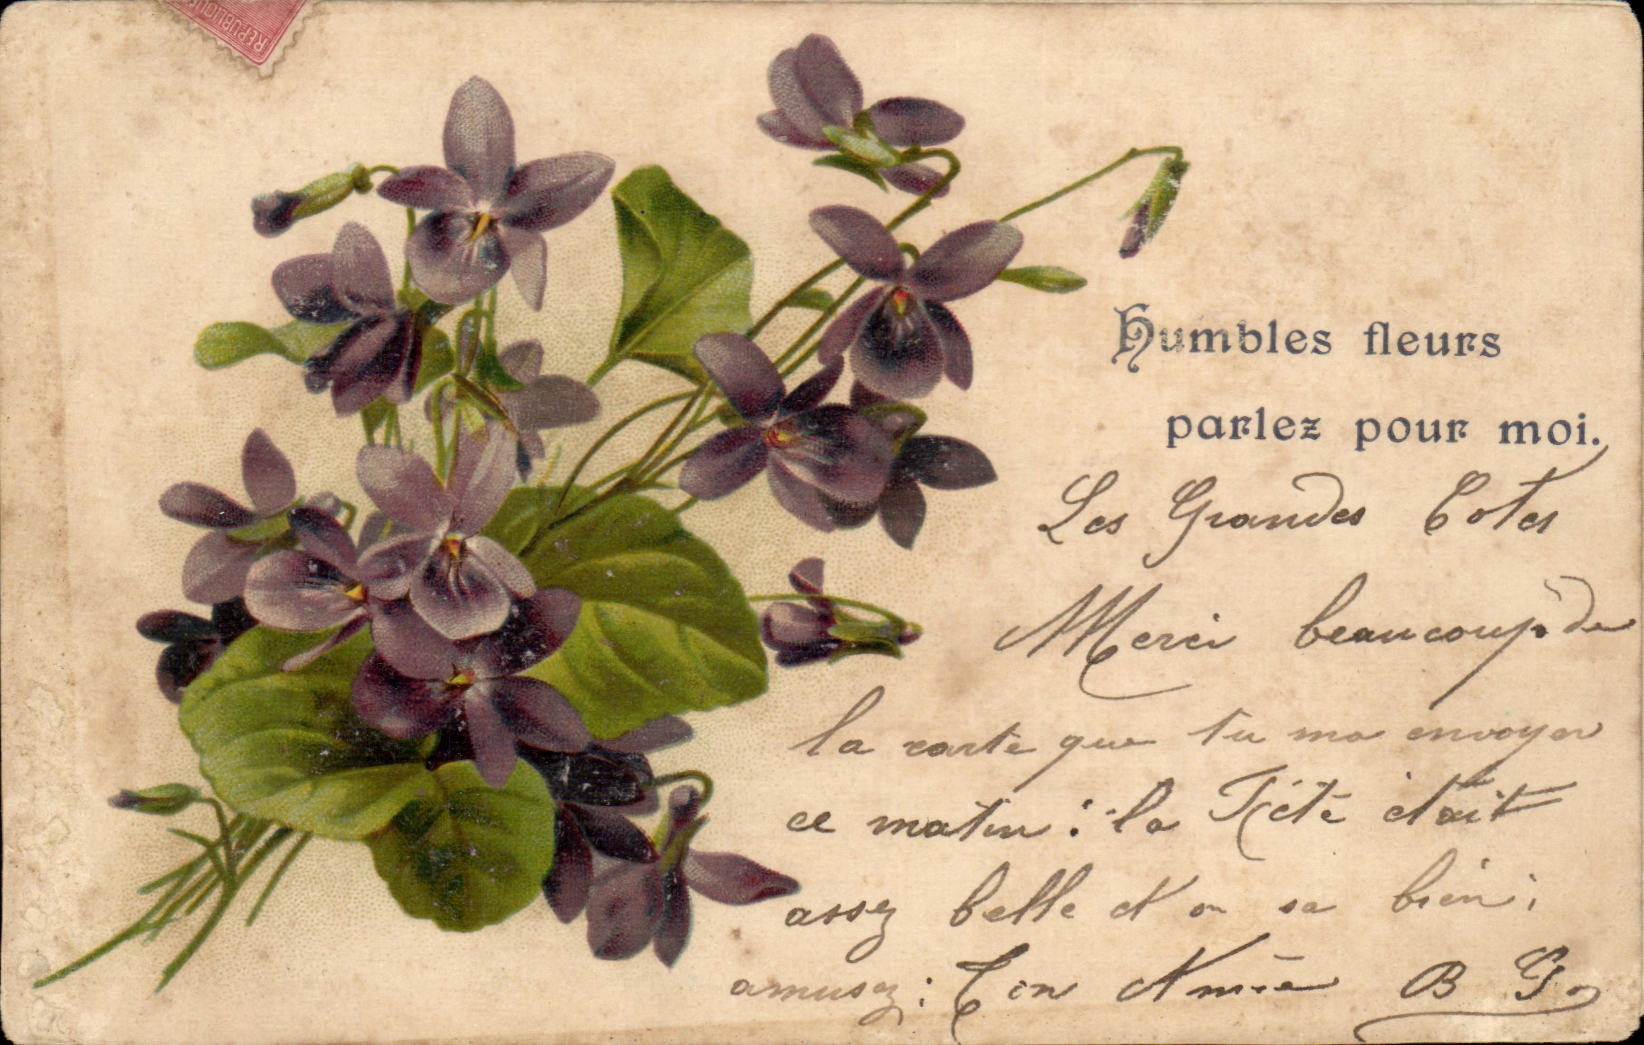 REPUBLIQUE
Humbles fleurs
parlez pour moi.
Les Grandes Cotes
Merci beaucoup de
la carte que tu ma envoyer
ce matin : la Fête était
assez belle et on sa bien
amusez : Ton Amie B G